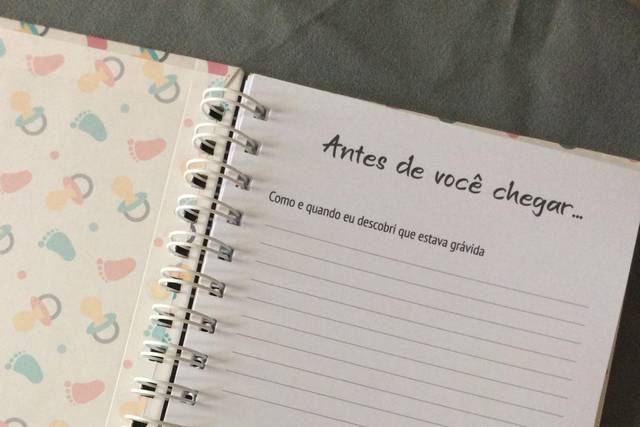 Antes de você chegar...
Como e quando eu descobri que estava grávida